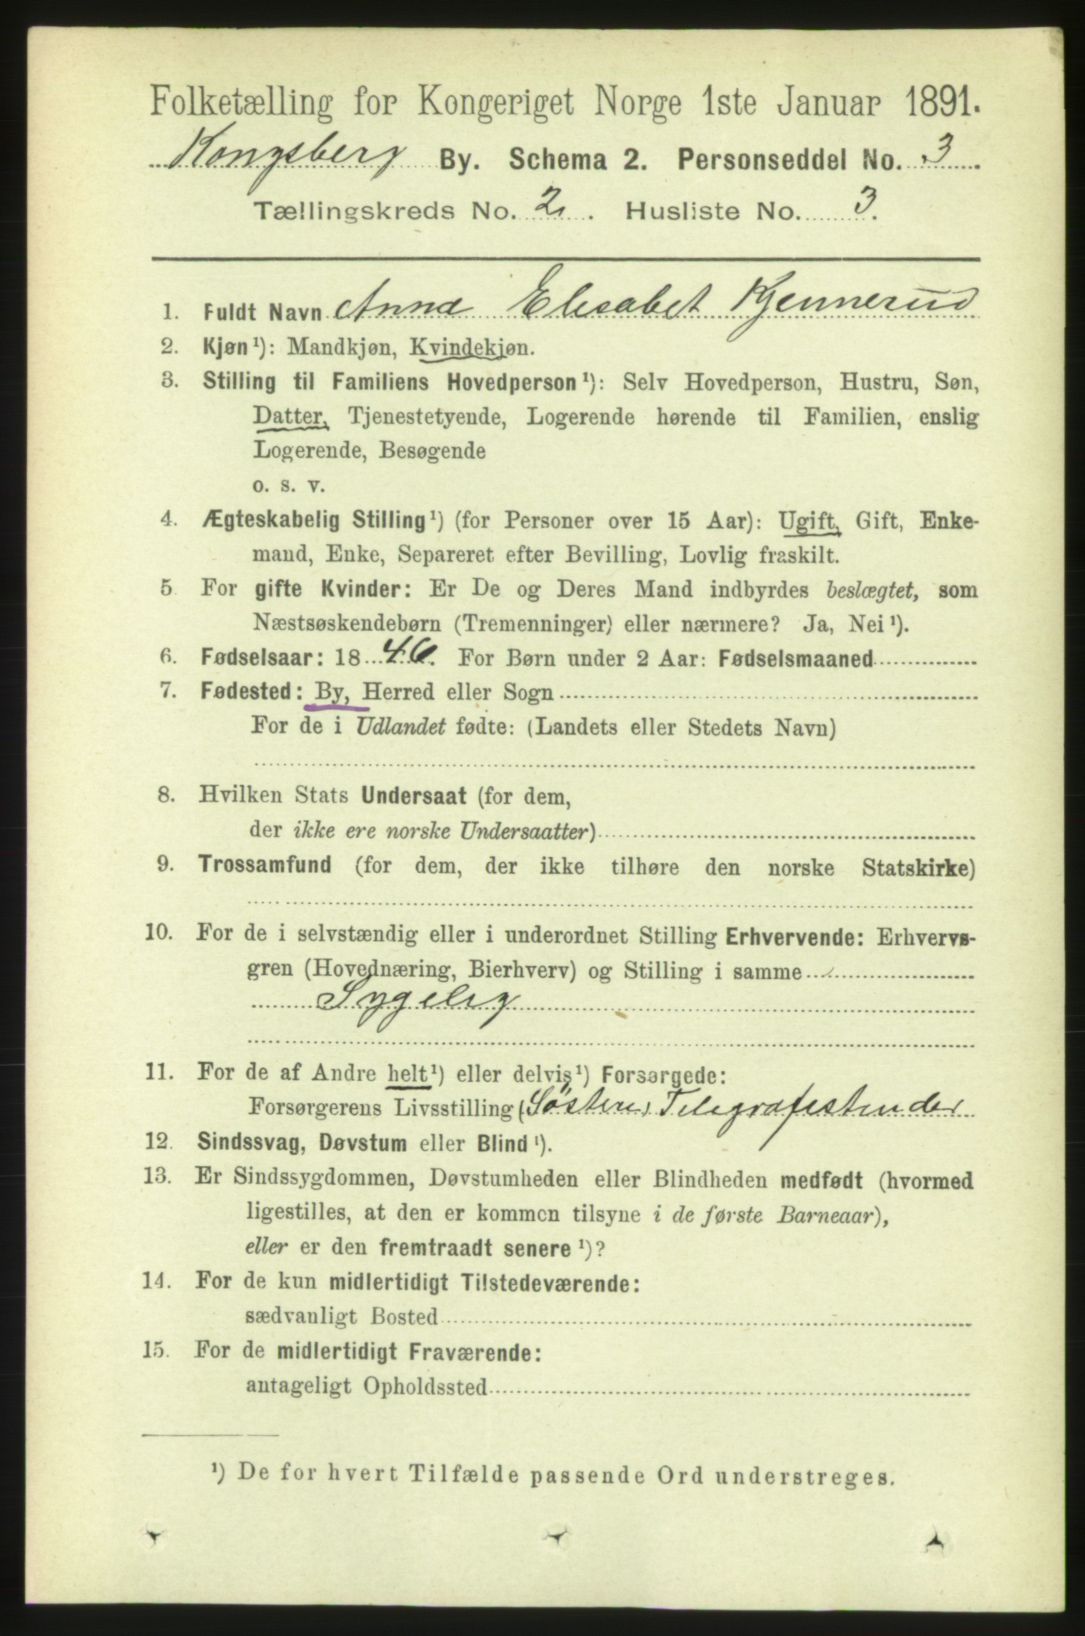 Folketælling for Kongeriget Norge 1ste Januar 1891.
Kongsberg By. Schema 2. Personseddel No. 3.
Tællingskreds No. 2. Husliste No. 3.
1. Fuldt Navn Anna Elisabet Kjennerud
2. Kjøn¹): Mandkjøn, Kvindekjøn.
3. Stilling til Familiens Hovedperson¹): Selv Hovedperson, Hustru, Søn,
Datter, Tjenestetyende, Logerende hørende til Familien, enslig
Logerende, Besøgende
o. s. v.
4. Ægteskabelig Stilling¹) (for Personer over 15 Aar): Ugift, Gift, Enke-
mand, Enke, Separeret efter Bevilling, Lovlig fraskilt.
5 For gifte Kvinder: Er De og Deres Mand indbyrdes beslægtet, som
Næstsøskendebørn (Tremenninger) eller nærmere? Ja, Nei¹).
6. Fødselsaar: 1846. For Børn under 2 Aar: Fødselsmaaned
7. Fødested: By, Herred eller Sogn
For de i Udlandet fødte: (Landets eller Stedets Navn)
8. Hvilken Stats Undersaat (for dem,
der ikke ere norske Undersaatter)
9. Trossamfund (for dem, der ikke tilhøre den norske Statskirke)
10. For de i selvstændig eller i underordnet Stilling Erhvervende: Erhvervs-
gren (Hovednæring, Bierhverv) og Stilling i samme
Sygelig
11. For de af Andre helt¹) eller delvis¹) Forsørgede:
Forsørgerens Livsstilling (Søstere) Telegrafistinder
12. Sindssvag, Døvstum eller Blind¹).
13. Er Sindssygdommen, Døvstumheden eller Blindheden medfødt (hvormed
ligestilles, at den er kommen tilsyne i de første Barneaar),
eller er den fremtraadt senere¹)?
14. For de kun midlertidigt Tilstedeværende:
sædvanligt Bosted
15. For de midlertidigt Fraværende:
antageligt Opholdssted
¹) De for hvert Tilfælde passende Ord understreges.